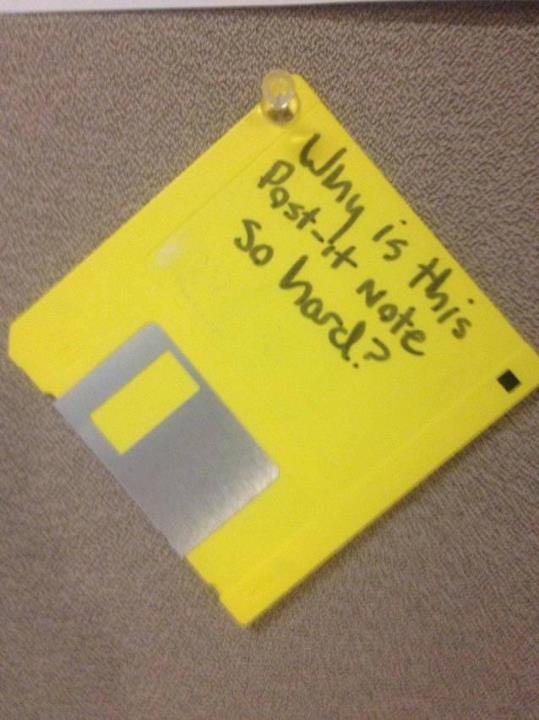 Why is this
Post-it Note
So hard?